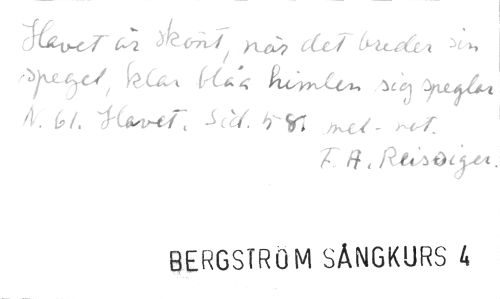 Havet är skönt, när det breder sin
speget, klar blåa himlen sig speglar
N. 61. Havet. Sid. 58. mel-not.
F. A. Reissiger.
BERGSTRÖM SÅNGKURS 4